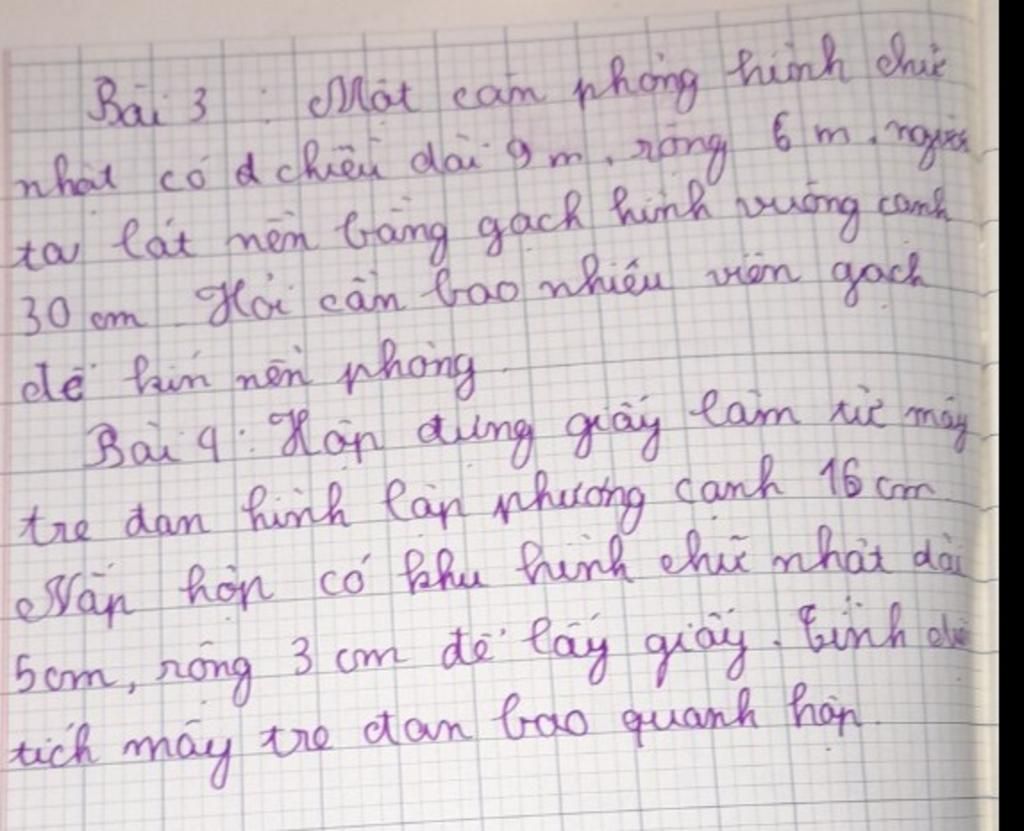 Bài 3 : Một căn phòng hình chữ
nhật có chiều dài 9 m, rộng 6 m, người
ta lát nền bằng gạch hình vuông cạnh
30 cm Hỏi cần bao nhiêu viên gạch
để kín nền phòng
Bài 4: Hộp đựng giấy làm từ mây
tre đan hình lập phương cạnh 16 cm
Nắp hộp có khu hình chữ nhật dài
5cm, rộng 3 cm để lấy giấy. Tính
tích mây tre đan bao quanh hộp